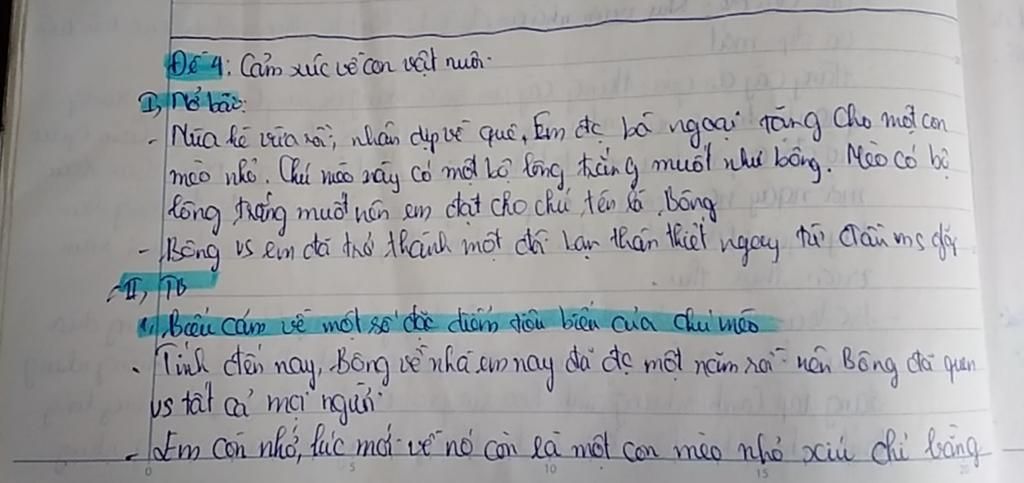 Đề 4: Cảm xúc về con vật nuôi.
I, Mở bài:
- Mùa hè vừa rồi, nhân dịp về quê, Em đc bà ngoại tặng cho một con
mèo nhỏ. Chú mèo này có một bộ lông trắng muốt như bông. Mèo có bộ
lông trắng muốt nên em đặt cho chú tên là Bông
- Bông vs em đã trở thành một đôi bạn thân thiết ngay từ đầu ms gặp
II, TB
1, Biểu cảm về một số đặc điểm tiêu biểu của chú mèo
- Tính đến nay, Bông về nhà em nay đã đc một năm rồi nên Bông đã quen
vs tất cả mọi người.
- Em còn nhớ, lúc mới về nó còn là một con mèo nhỏ xíu chỉ bằng
0 5 10 15 20